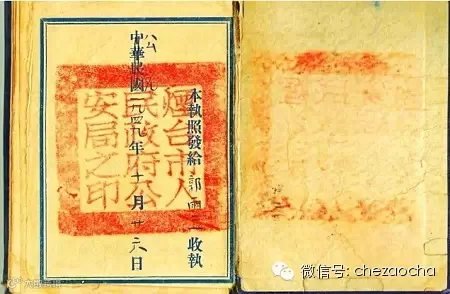 本執照發給郭雨收執
煙台市人
民政府公
安局之印
中華民國一九四九年十一月廿六日
微信号: chezaocha